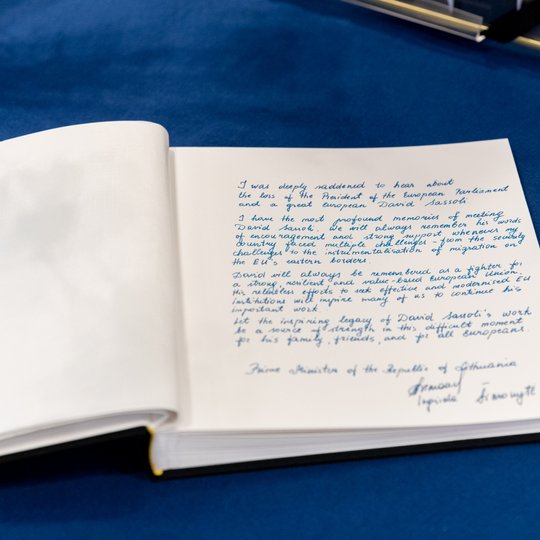 I was deeply saddened to hear about
the loss of the President of the European Parliament
and a great European David Sassoli.
I have the most profound memories of meeting
David Sasoli. We will always remember his words
of encouragement and strong support whenever my
country faced multiple challenges - from the security
challenges to the instrumentalisation of migration on
the EU's eastern borders.
David will always be remembered as a fighter for
a strong, resilient, and value-based European Union.
His relentless efforts to seek effective and modernised EU
institutions will inspire many of us to continue his
important work.
Let the inspiring legacy of David Sasoli's work
be a source of strength in this difficult moment
for his family, friends, and for all Europeans.
Prime Minister of the Republic of Lithuania
Ingrida Šimonytė